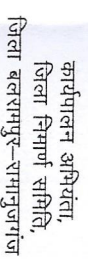 कार्यपालन अभियंता,
जिला निर्माण समिति,
जिला बलरामपुर–रामानुजगंज